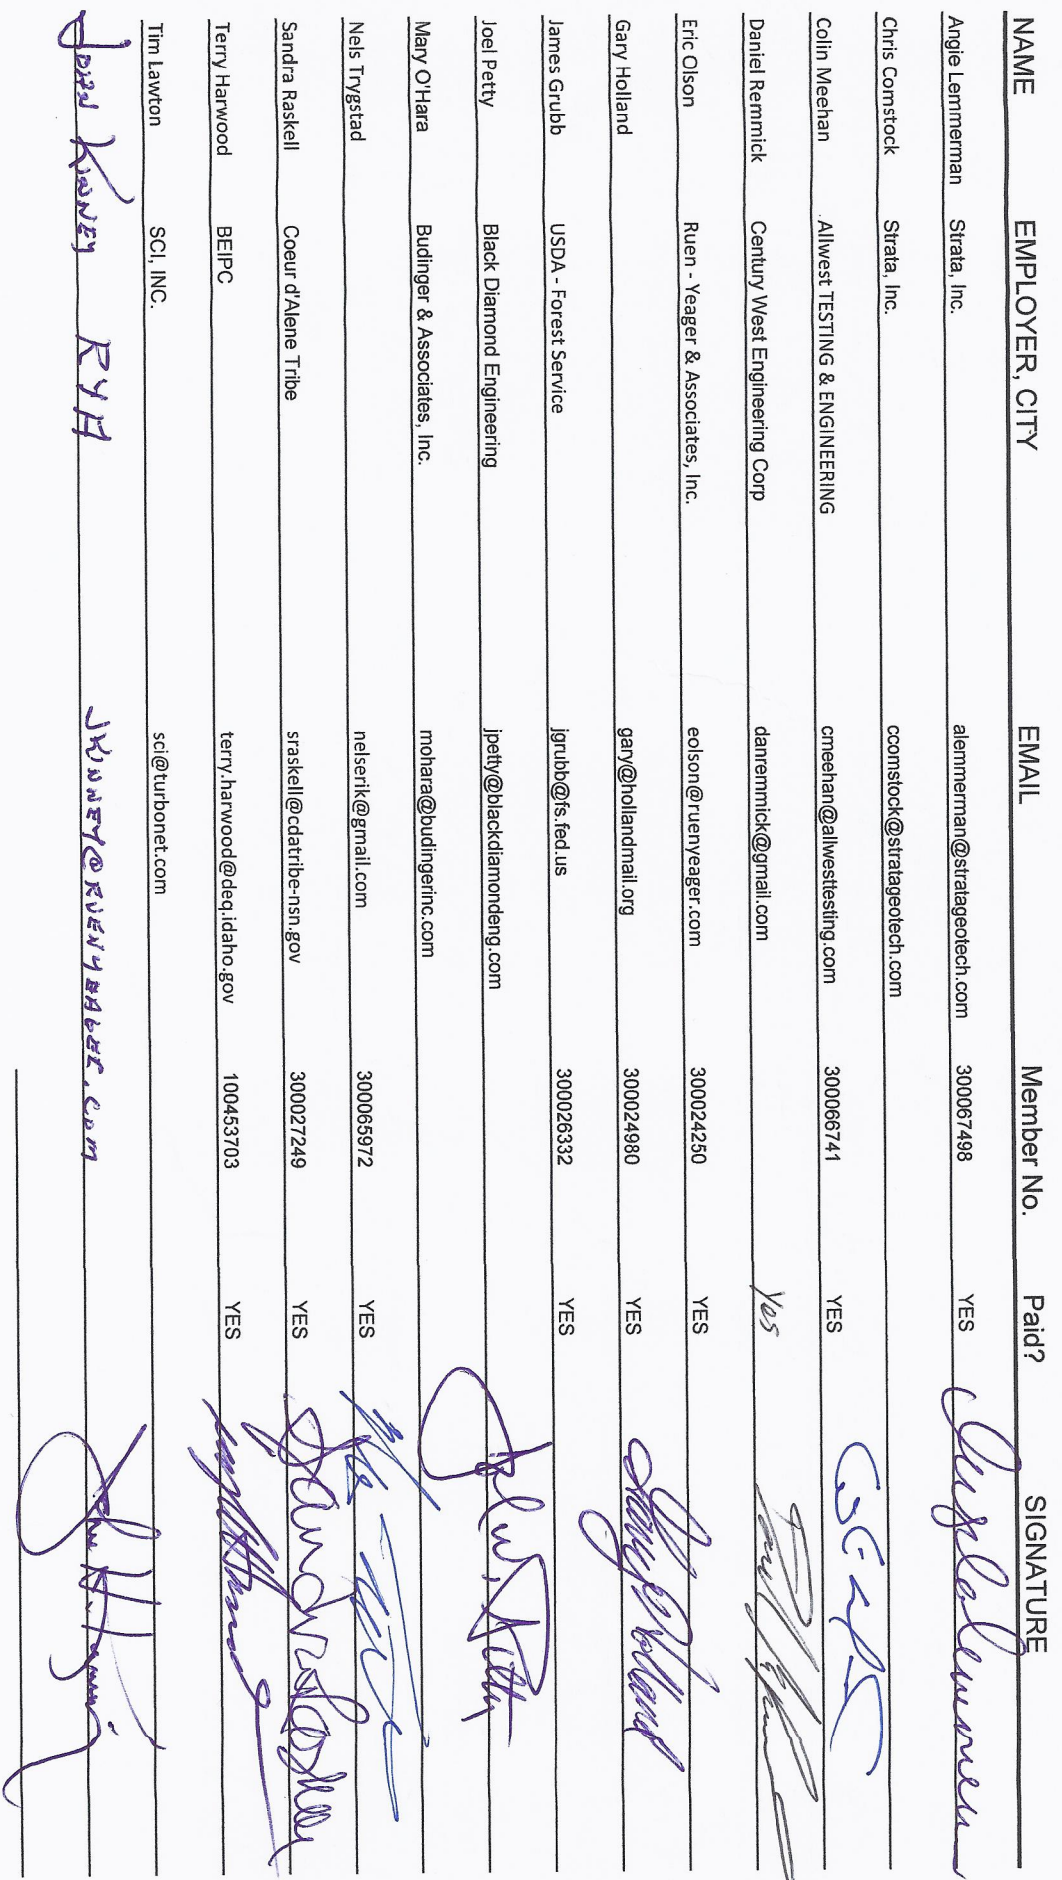 NAME EMPLOYER, CITY EMAIL Member No. Paid? SIGNATURE
Angie Lemmerman Strata, Inc. alemmerman@stratageotech.com 300067498 YES
Chris Comstock Strata, Inc. ccomstock@stratageotech.com
Colin Meehan Allwest TESTING & ENGINEERING cmeehan@allwesttesting.com 300066741 YES
Daniel Remmick Century West Engineering Corp danremmick@gmail.com Yes
Eric Olson Ruen - Yeager & Associates, Inc. eolson@ruenyeager.com 300024250 YES
Gary Holland gary@hollandmail.org 300024980 YES Gary Holland
James Grubb USDA - Forest Service jgrubb@fs.fed.us 300026332 YES
Joel Petty Black Diamond Engineering jpetty@blackdiamondeng.com
Mary O'Hara Budinger & Associates, Inc. mohara@budingerinc.com
Nels Trygstad nelserik@gmail.com 300065972 YES
Sandra Raskell Coeur d'Alene Tribe sraskell@cdatribe-nsn.gov 300027249 YES Sandra Raskell
Terry Harwood BEIPC terry.harwood@deq.idaho.gov 100453703 YES
Tim Lawton SCI, INC. sci@turbonet.com
JOHN KINNEY RYA JKINNEY@RUENYEAGER.COM